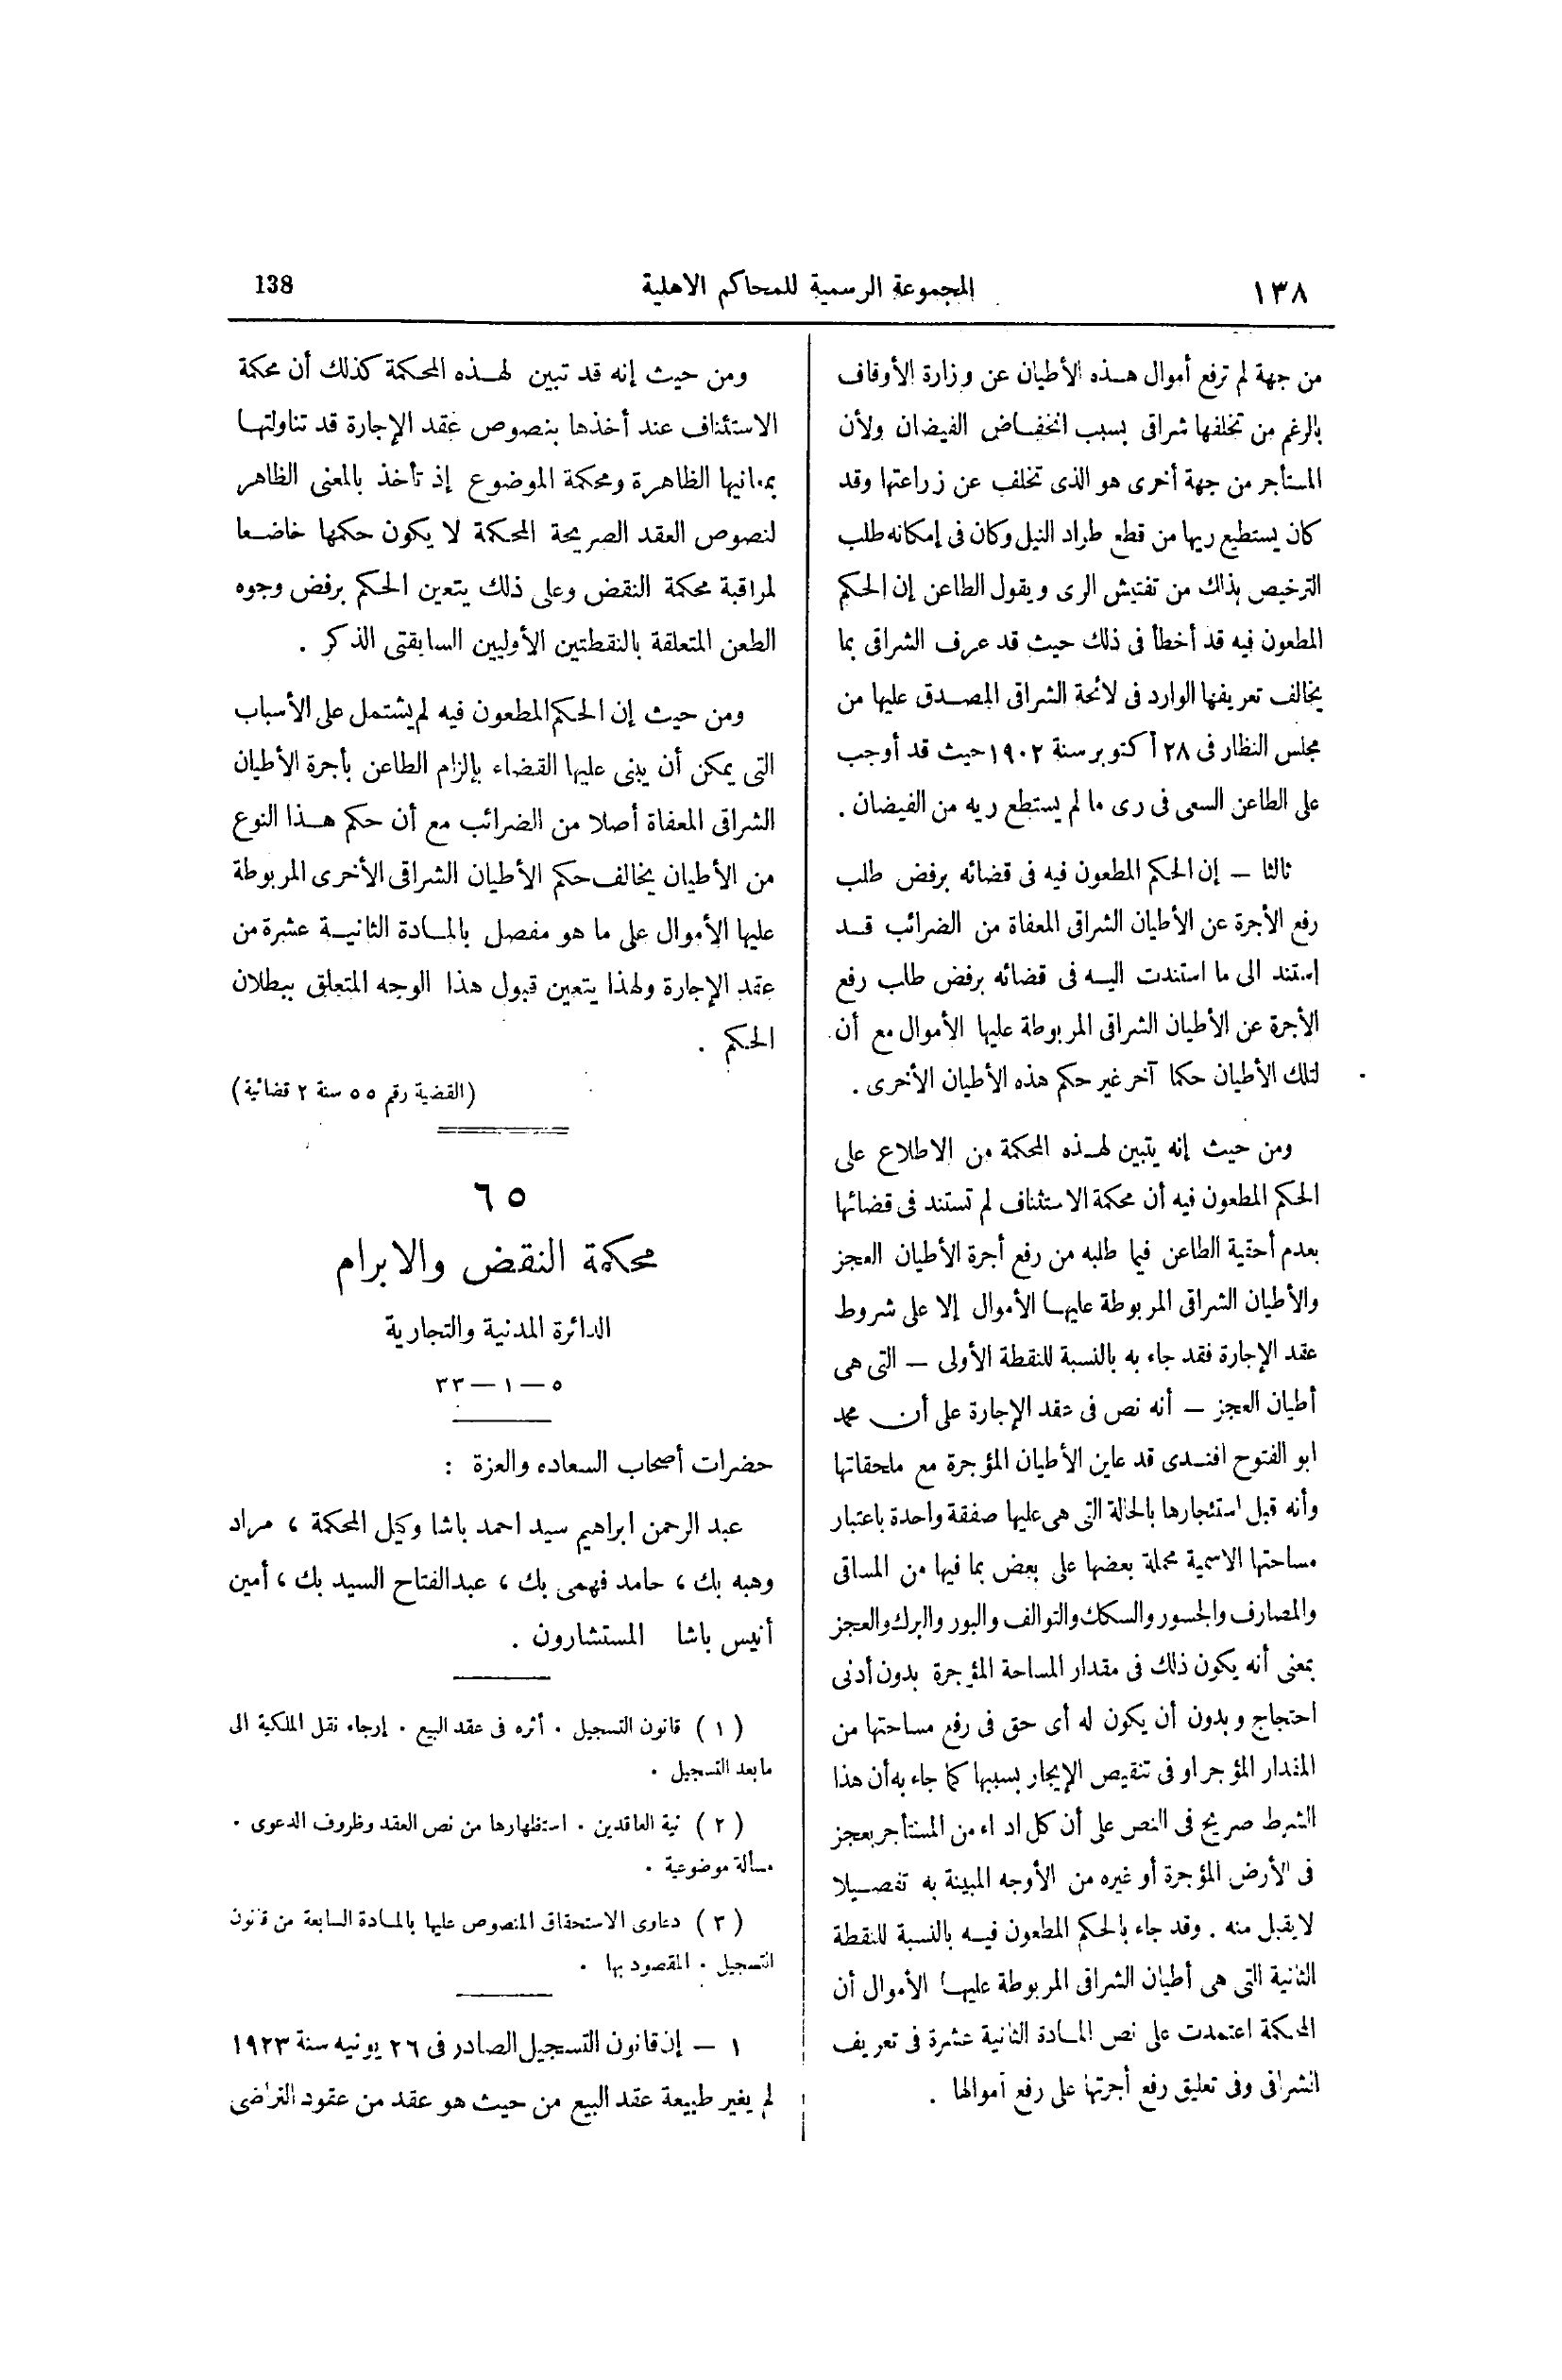 ١٣٨
المجموعة الرسمية للمحاكم الاهلية
138
من جهة لم ترفع أموال هذه الأطيان عن وزارة الأوقاف
بالرغم من تخلفها شراقى بسبب انخفاض الفيضان ولأن
المستأجر من جهة أخرى هو الذى تخلف عن زراعتها وقد
كان يستطيع ريها من قطع طراد النيل وكان فى إمكانه طلب
الترخيص بذلك من تفتيش الرى ويقول الطاعن إن الحكم
المطعون فيه قد أخطأ فى ذلك حيث قد عرف الشراقى بما
يخالف تعريفها الوارد فى لائحة الشراقى المصدق عليها من
مجلس النظار فى ٢٨ أكتوبر سنة ١٩٠٢ حيث قد أوجب
على الطاعن السعى فى رى ما لم يستطع ريه من الفيضان .
ثالثا — إن الحكم المطعون فيه فى قضائه برفض طلب
رفع الأجرة عن الأطيان الشراقى المعفاة من الضرائب قد
استند الى ما استندت اليه فى قضائه برفض طلب رفع
الأجرة عن الأطيان الشراقى المربوطة عليها الأموال مع أن
لتلك الأطيان حكما آخر غير حكم هذه الأطيان الأخرى .
ومن حيث إنه يتبين لهذه المحكمة من الاطلاع على
الحكم المطعون فيه أن محكمة الاستئناف لم تستند فى قضائها
بعدم أحقية الطاعن فيما طلبه من رفع أجرة الأطيان العجز
والأطيان الشراقى المربوطة عليها الأموال إلا على شروط
عقد الإجارة فقد جاء به بالنسبة للنقطة الأولى — التى هى
أطيان العجز — أنه نص فى عقد الإجارة على أن محمد
ابو الفتوح افندى قد عاين الأطيان المؤجرة مع ملحقاتها
وأنه قبل استئجارها بالحالة التى هى عليها صفقة واحدة باعتبار
مساحتها الاسمية محملة بعضها على بعض بما فيها من المساقى
والمصارف والجسور والسكك والتوالف والبور والبرك والعجز
بمعنى أنه يكون ذلك فى مقدار المساحة المؤجرة بدون أدنى
احتجاج وبدون أن يكون له أى حق فى رفع مساحتها من
المقدار المؤجر او فى تنقيص الإيجار بسببها كما جاء به أن هذا
الشرط صريح فى النص على أن كل ادعاء من المستأجر بعجز
فى الأرض المؤجرة أو غيره من الأوجه المبينة به تفصيلا
لا يقبل منه . وقد جاء بالحكم المطعون فيه بالنسبة للنقطة
الثانية التى هى أطيان الشراقى المربوطة عليها الأموال أن
المحكمة اعتمدت على نص المادة الثانية عشرة فى تعريف
الشراقى وفى تعليق رفع أجرتها على رفع أموالها .
ومن حيث إنه قد تبين لهذه المحكمة كذلك أن محكمة
الاستئناف عند أخذها بنصوص عقد الإجارة قد تناولتها
بمعانيها الظاهرة ومحكمة الموضوع إذ تأخذ بالمعنى الظاهر
لنصوص العقد الصريحة المحكمة لا يكون حكمها خاضعا
لمراقبة محكمة النقض وعلى ذلك يتعين الحكم برفض وجوه
الطعن المتعلقة بالنقطتين الأوليين السابقتى الذكر .
ومن حيث إن الحكم المطعون فيه لم يشتمل على الأسباب
التى يمكن أن يبنى عليها القضاء بإلزام الطاعن بأجرة الأطيان
الشراقى المعفاة أصلا من الضرائب مع أن حكم هذا النوع
من الأطيان يخالف حكم الأطيان الشراقى الأخرى المربوطة
عليها الأموال على ما هو مفصل بالمادة الثانية عشرة من
عقد الإجارة ولهذا يتعين قبول هذا الوجه المتعلق ببطلان
الحكم .
(القضية رقم ٥٥ سنة ٢ قضائية)
٦٥
محكمة النقض والابرام
الدائرة المدنية والتجارية
٥ — ١ — ٣٣
حضرات أصحاب السعاده والعزة :
عبد الرحمن ابراهيم سيد احمد باشا وكيل المحكمة ، مراد
وهبه بك ، حامد فهمى بك ، عبد الفتاح السيد بك ، أمين
أنيس باشا المستشارون .
( ١ ) قانون التسجيل . أثره فى عقد البيع . إرجاء نقل الملكية الى
ما بعد التسجيل .
( ٢ ) نية العاقدين . استظهارها من نص العقد وظروف الدعوى .
مسألة موضوعية .
( ٣ ) دعاوى الاستحقاق المنصوص عليها بالمادة السابعة من قانون
التسجيل . المقصود بها .
١ — إن قانون التسجيل الصادر فى ٢٦ يونيه سنة ١٩٢٣
لم يغير طبيعة عقد البيع من حيث هو عقد من عقود التراضى